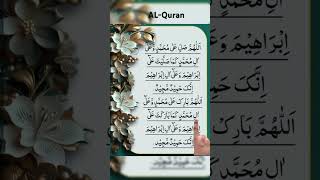 AL-Quran
اَللّٰهُمَّ صَلِّ عَلٰى مُحَمَّدٍ وَّعَلٰٓى
اِبْرَاهِيْمَ وَعَلٰٓى
اٰلِ مُحَمَّدٍ كَمَا صَلَّيْتَ عَلٰٓى
اِبْرَاهِيْمَ وَعَلٰٓى اٰلِ اِبْرَاهِيْمَ
اِنَّكَ حَمِيْدٌ مَّجِيْدٌ
اَللّٰهُمَّ بَارِكْ عَلٰى مُحَمَّدٍ وَّعَلٰٓى
اٰلِ مُحَمَّدٍ كَمَا بَارَكْتَ عَلٰٓى
اِبْرَاهِيْمَ وَعَلٰٓى اٰلِ اِبْرَاهِيْمَ
اِنَّكَ حَمِيْدٌ مَّجِيْدٌ
اَللّٰهُمَّ بَارِكْ
اٰلِ مُحَمَّدٍ